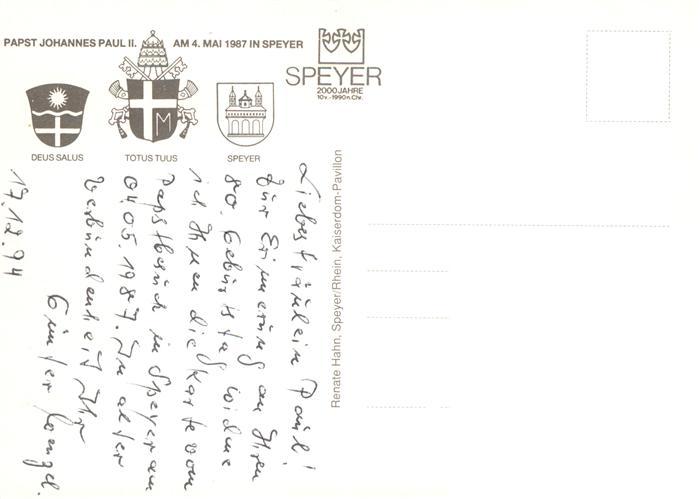 PAPST JOHANNES PAUL II. AM 4. MAI 1987 IN SPEYER
SPEYER
2000 JAHRE
10 v.-1990 n. Chr.
M
DEUS SALUS
TOTUS TUUS
SPEYER
Liebes Fräulein Paul!
Zur Erinnerung an Ihren
80. Geburtstag widme
ich Ihnen die Karte vom
Papstbesuch in Speyer am
04.05.1987. In alter
Verbundenheit Ihr
Günter
17.12.94
Renate Hahn, Speyer/Rhein, Kaiserdom-Pavillon